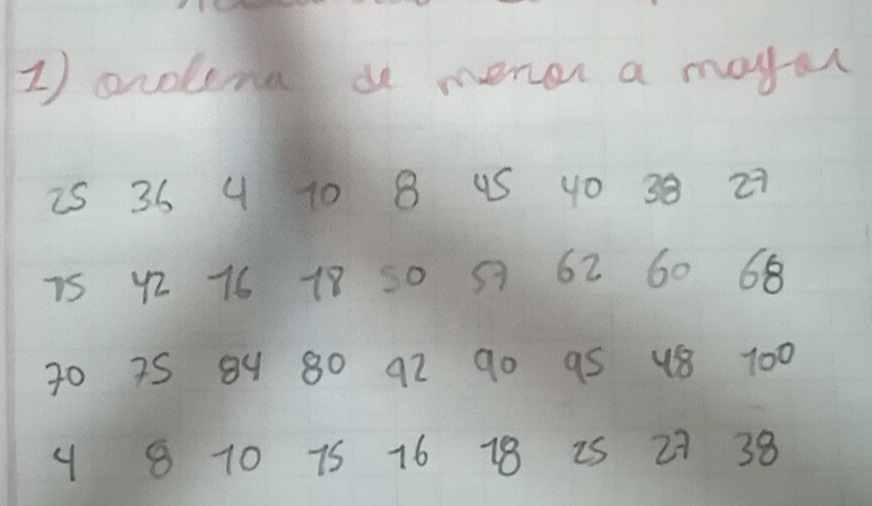 1) ordena de menor a mayor
25 36 4 10 8 45 40 38 27
15 42 16 18 50 57 62 60 68
70 75 84 80 92 90 95 48 100
4 8 10 15 16 18 25 27 38